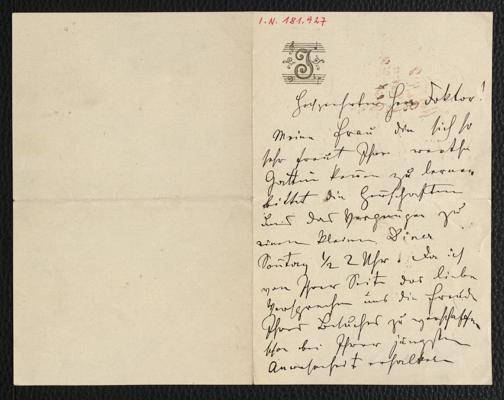 I.N. 181.927
J
Hochgeehrter Herr Doktor!
Meine Frau die sich so
sehr freut Ihre werthe
Gattin kennen zu lernen
bittet die Herrschaften
uns das Vergnügen zu
einem kleinen Diner
Sonntag 1/2 2 Uhr. Da ich
von Ihrer Seite das liebe
Versprechen uns die Freude
Ihres Besuches zu verschaffen
schon bei Ihrer jüngsten
Anwesenheit erhalten